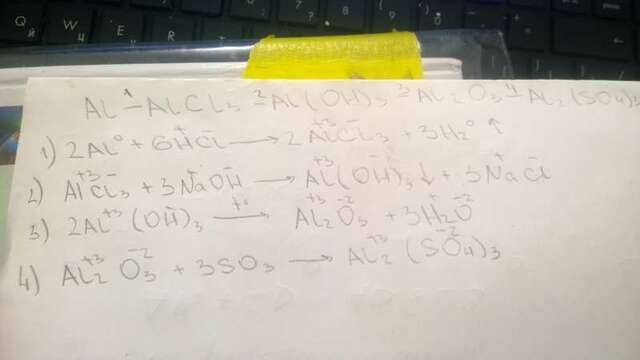 Al 1— AlCl3 2— Al(OH)3 3— Al2O3 4— Al2(SO4)3
1) 2Al⁰ + 6H⁺Cl⁻ ⟶ 2Al⁺³Cl⁻3 + 3H2⁰ ↑
2) Al⁺³Cl⁻3 + 3Na⁺OH⁻ ⟶ Al⁺³(OH)⁻3 ↓ + 3Na⁺Cl⁻
3) 2Al⁺³(OH)⁻3 t° ⟶ Al2⁺³O3⁻² + 3H2⁺O⁻²
4) Al2⁺³O3⁻² + 3SO3 ⟶ Al2⁺³(SO4)⁻²3